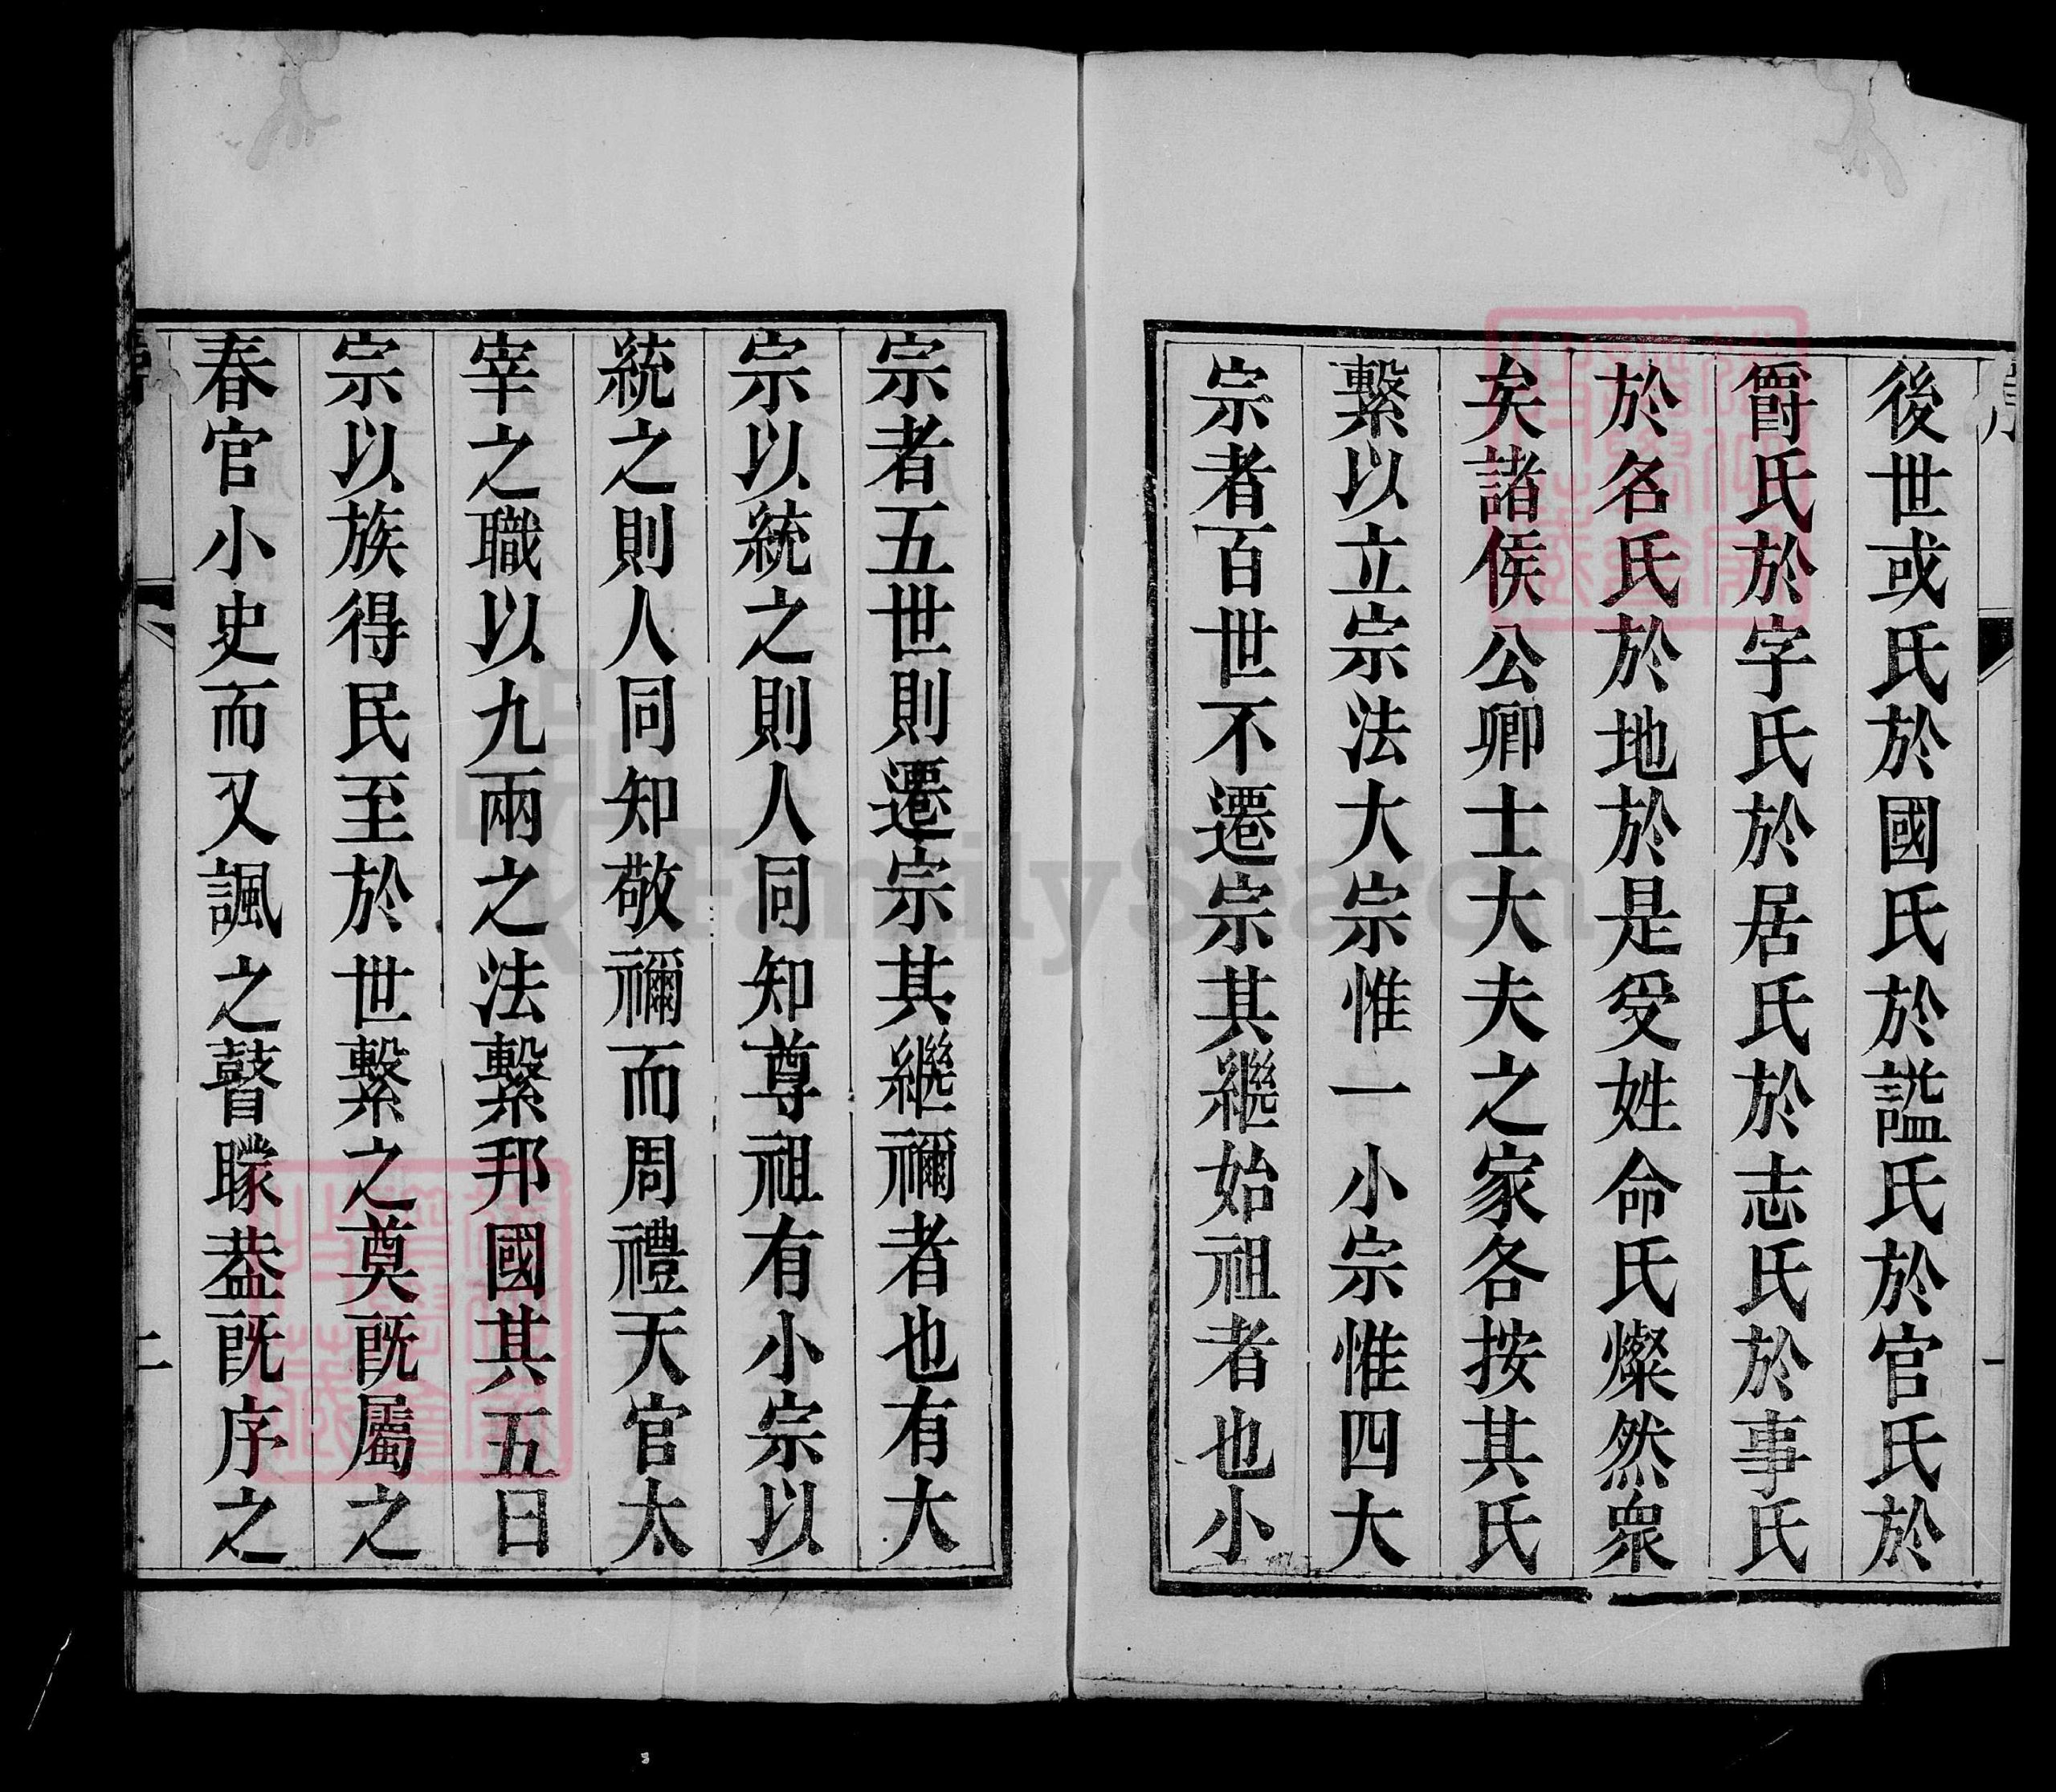 後世或氏於國氏於謚氏於官氏於
爵氏於字氏於居氏於志氏於事氏
於名氏於地於是受姓命氏燦然衆
矣諸侯公卿士大夫之家各按其氏
繫以立宗法大宗惟一小宗惟四大
宗者百世不遷宗其繼始祖者也小
宗者五世則遷宗其繼禰者也有大
宗以統之則人同知尊祖有小宗以
統之則人同知敬禰而周禮天官太
宰之職以九兩之法繫邦國其五曰
宗以族得民至於世繫之奠既屬之
春官小史而又諷之瞽矇葢既序之
二
FamilySearch